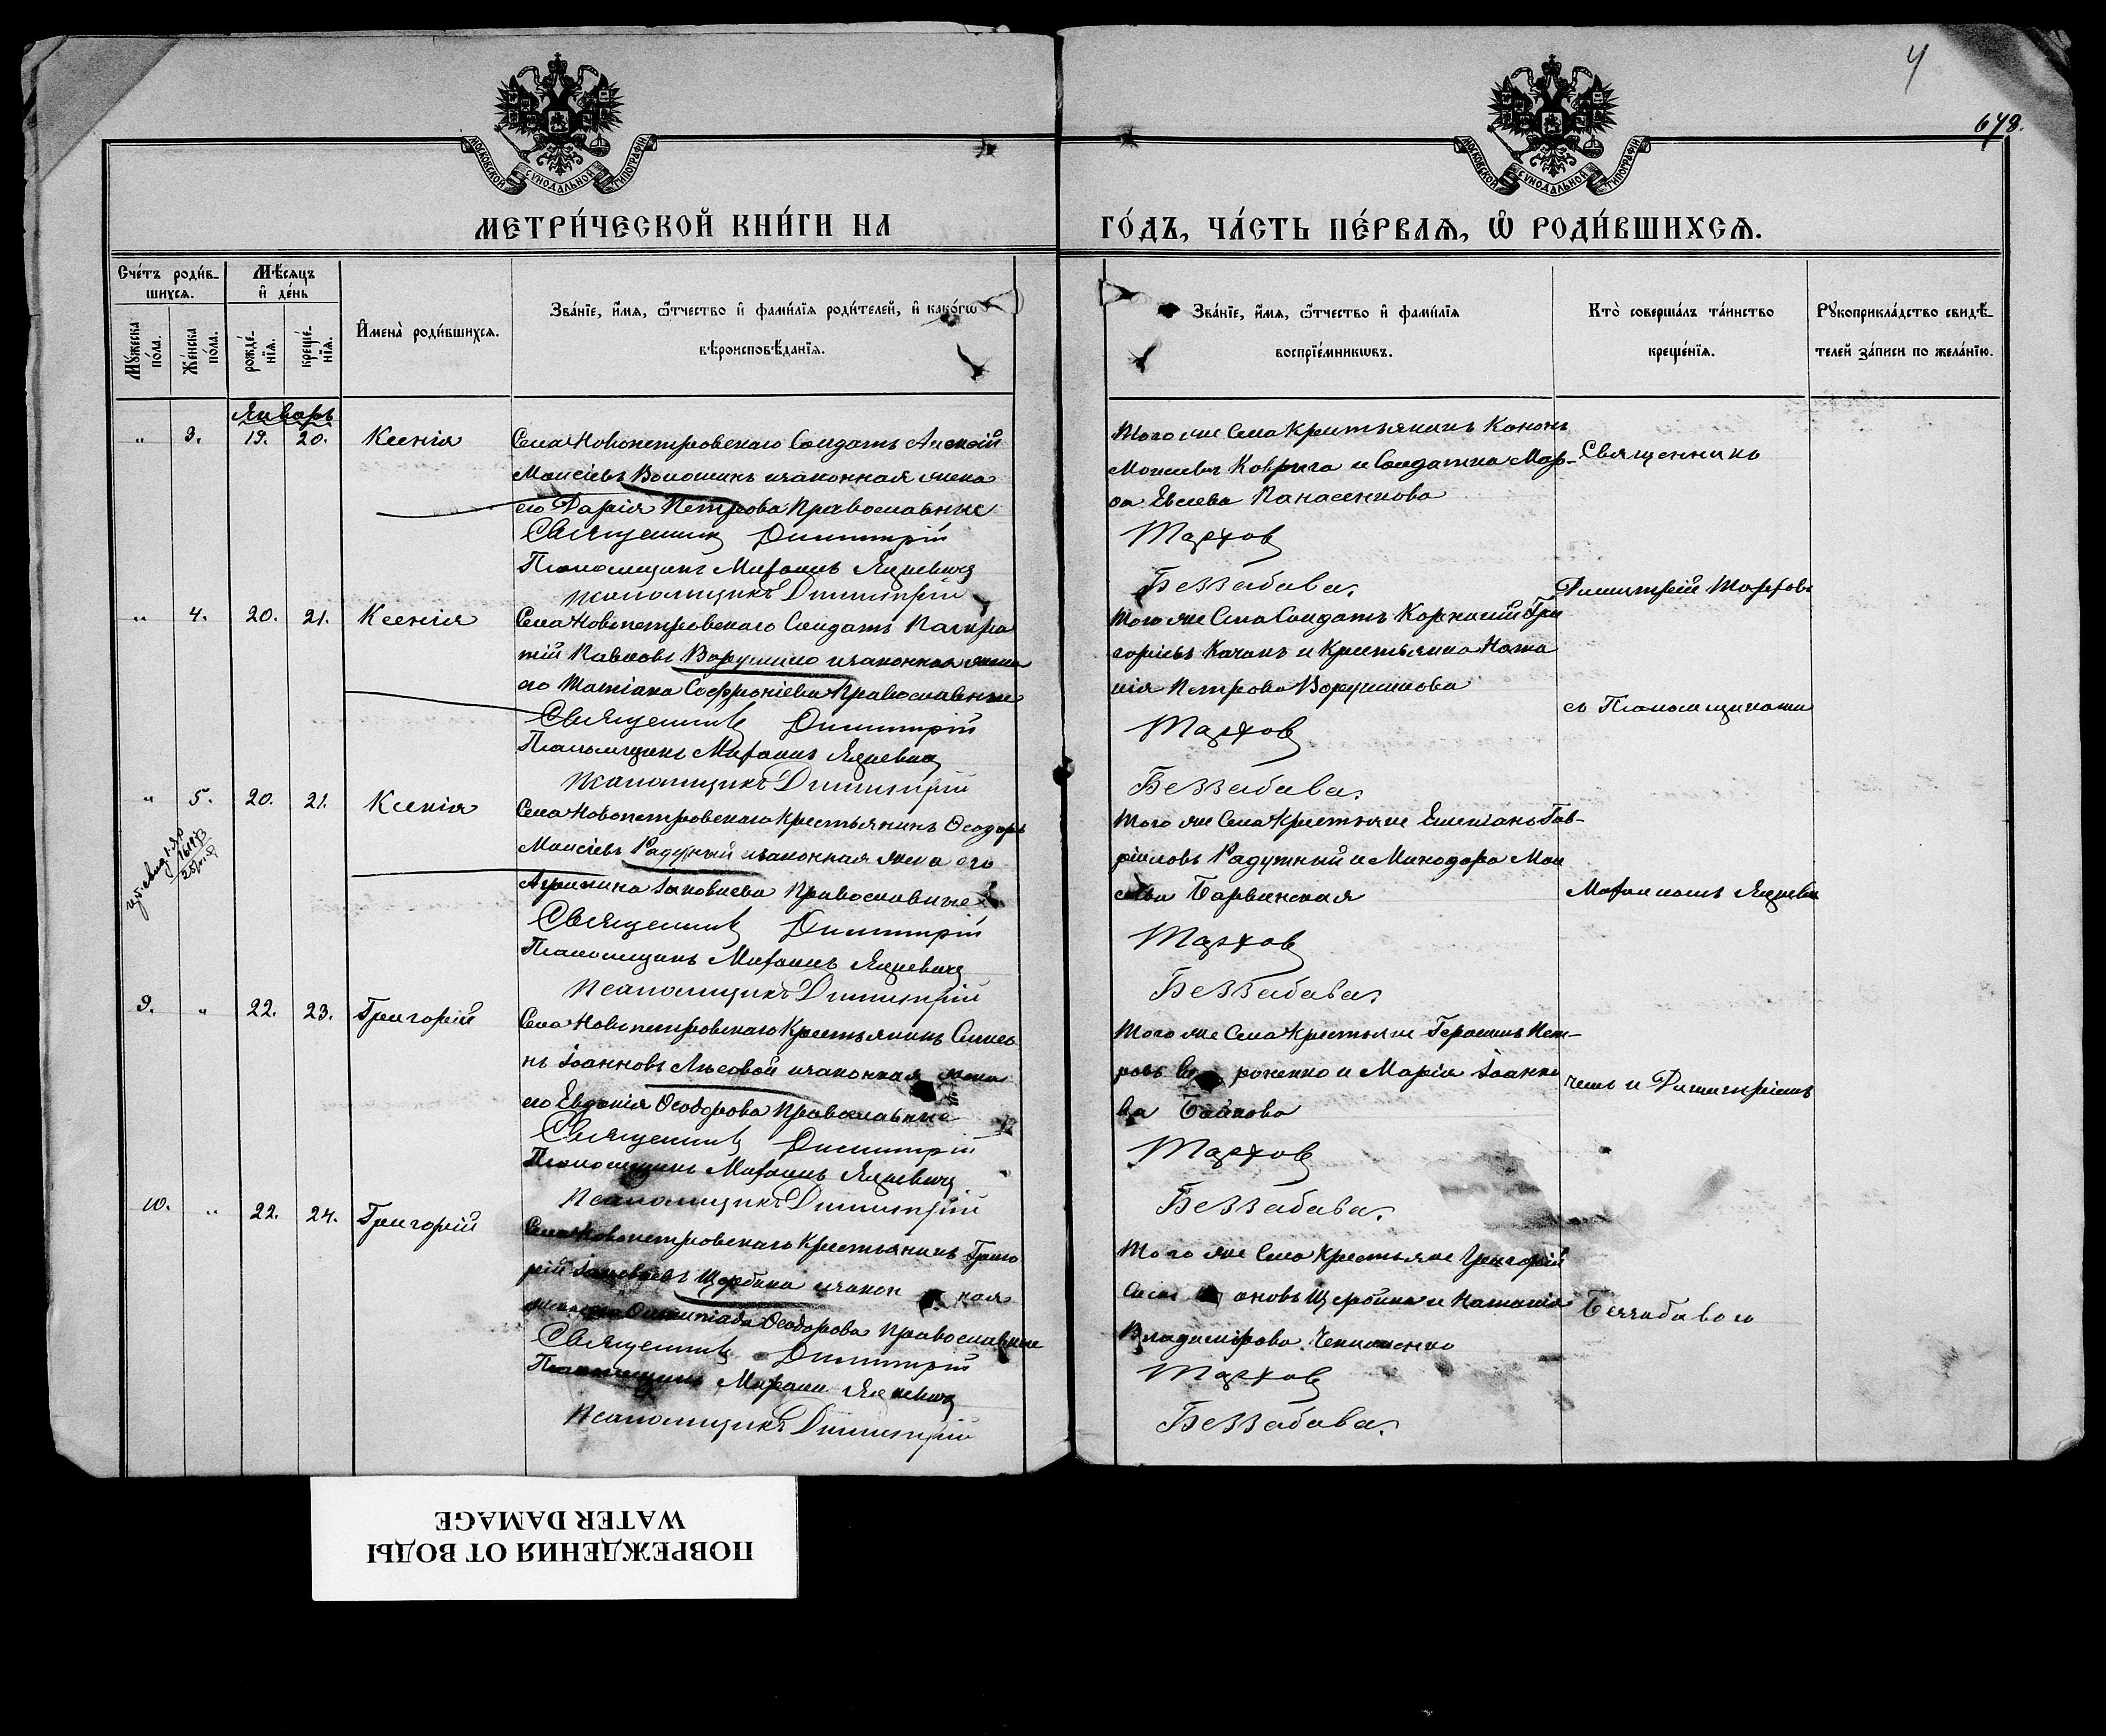 4
678.
МОСКОВСКОЙ СѴНОДАЛЬНОЙ ТИПОГРАФІИ
МОСКОВСКОЙ СѴНОДАЛЬНОЙ ТИПОГРАФІИ
МЕТРИ́ЧЕСКОЙ КНИ́ГИ НА ГО́ДЪ, ЧА́СТЬ ПЕ́РВАѦ, Ѡ҆ РОДИ́ВШИХСѦ.
Сче́тъ роди́в-
шихсѧ.
Мѣ́сѧцъ
и҆ де́нь
Мꙋ́жеска
по́ла.
Же́нска
по́ла.
рожде́-
нїѧ.
креще́-
нїѧ.
И҆мена̀ роди́вшихсѧ.
Зва́нїе, и҆́мѧ, ѻ҆́тчество и҆ фами́лїѧ роди́телей, и҆ како́гѡ
вѣроисповѣ́данїѧ.
Зва́нїе, и҆́мѧ, ѻ҆́тчество и҆ фами́лїѧ
воспрїе́мникѡвъ.
Кто̀ соверша́лъ та́инство
креще́нїѧ.
Рꙋкоприкла́дство свидѣ́-
телей за́писи по жела́нїю.
Январь
" 3. 19. 20. Ксенія
Села Новопетровскаго Солдатъ Алексій
Моисіевъ Волошинъ и законная жена
его Дарія Петрова Православные
Священник Димитрій
Псаломщикъ Михаилъ Яцкевич
Псаломщикъ Димитрій
Того же Села Крестьянинъ Кононъ
Моисеевъ Коврига и Солдатка Мар-
фа Евсеева Панасенкова
Тархов
Беззабава.
Священникъ
" 4. 20. 21. Ксенія
Села Новопетровскаго Солдатъ Панкра
тій Павловъ Ворушило и законная жена
его Татіана Софроніева Православные
Священник Димитрій
Псаломщикъ Михаилъ Яцкевич
Псаломщикъ Димитрій
Того же Села Солдатъ Корнилій Гри
горіевъ Качанъ и Крестьянка Ната
лія Петрова Ворушилова
Тархов
Беззабава.
Димитрій Тарховъ
съ Псаломщиками
" 5. 20. 21. Ксенія
Села Новопетровскаго Крестьянинъ Ѳеодоръ
Моисіевъ Радужный и законная жена его
Агрипина Іаковлева Православные
Священник Димитрій
Псаломщикъ Михаилъ Яцкевич
Псаломщикъ Димитрій
Того же Села Крестьяне Емеліанъ Гав-
ріиловъ Радужный и Минодора Мои
сіева Барвинская
Тархов
Беззабава.
Михаиломъ Яцкеви
9. " 22. 23. Григорій
Села Новопетровскаго Крестьянинъ Симео
нъ Іоанновъ Лѣсовой и законная жена
его Евдокія Ѳеодорова Православные
Священник Димитрій
Псаломщикъ Михаилъ Яцкевич
Псаломщикъ Димитрій
Того же Села Крестьяне Герасимъ Пет-
ровъ роженко и Марія Іоанно
ва Бойкова
Тархов
Беззабава.
чемъ и Димитріемъ
10. " 22. 24. Григорій
Села Новопетровскаго Крестьянинъ Григо
рій Щербина и закон ная
жена его Олимпіада Ѳеодорова Православные
Священник Димитрій
Псаломщикъ Михаилъ Яцкевич
Псаломщикъ Димитрій
Того же Села Крестьяне Григорій
ановъ Щербина и Наталія
Владимірова
Тархов
Беззабава.
Беззабавою
ПОВРЕЖДЕНИЯ ОТ ВОДЫ
WATER DAMAGE